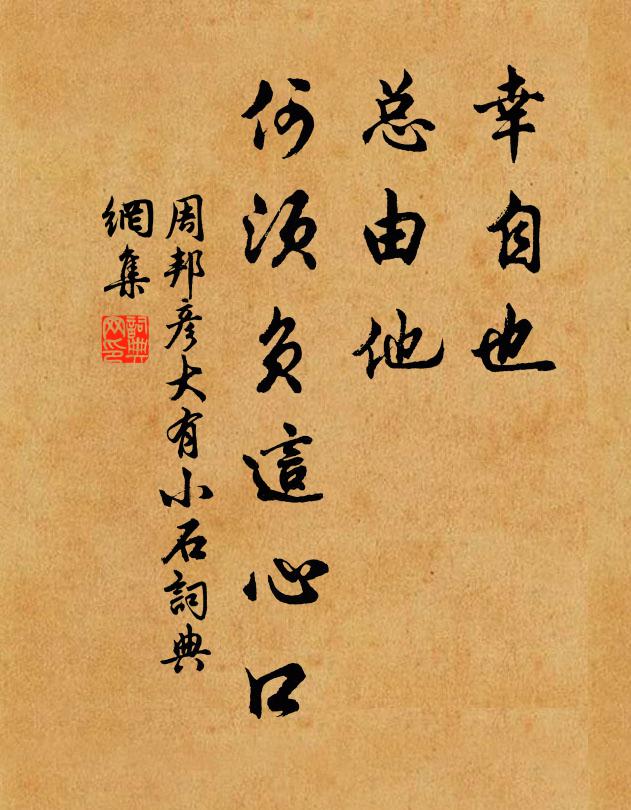 幸自也
总由他
何须负這心口
周邦彦大有小石詞典
網集
詞典
网印